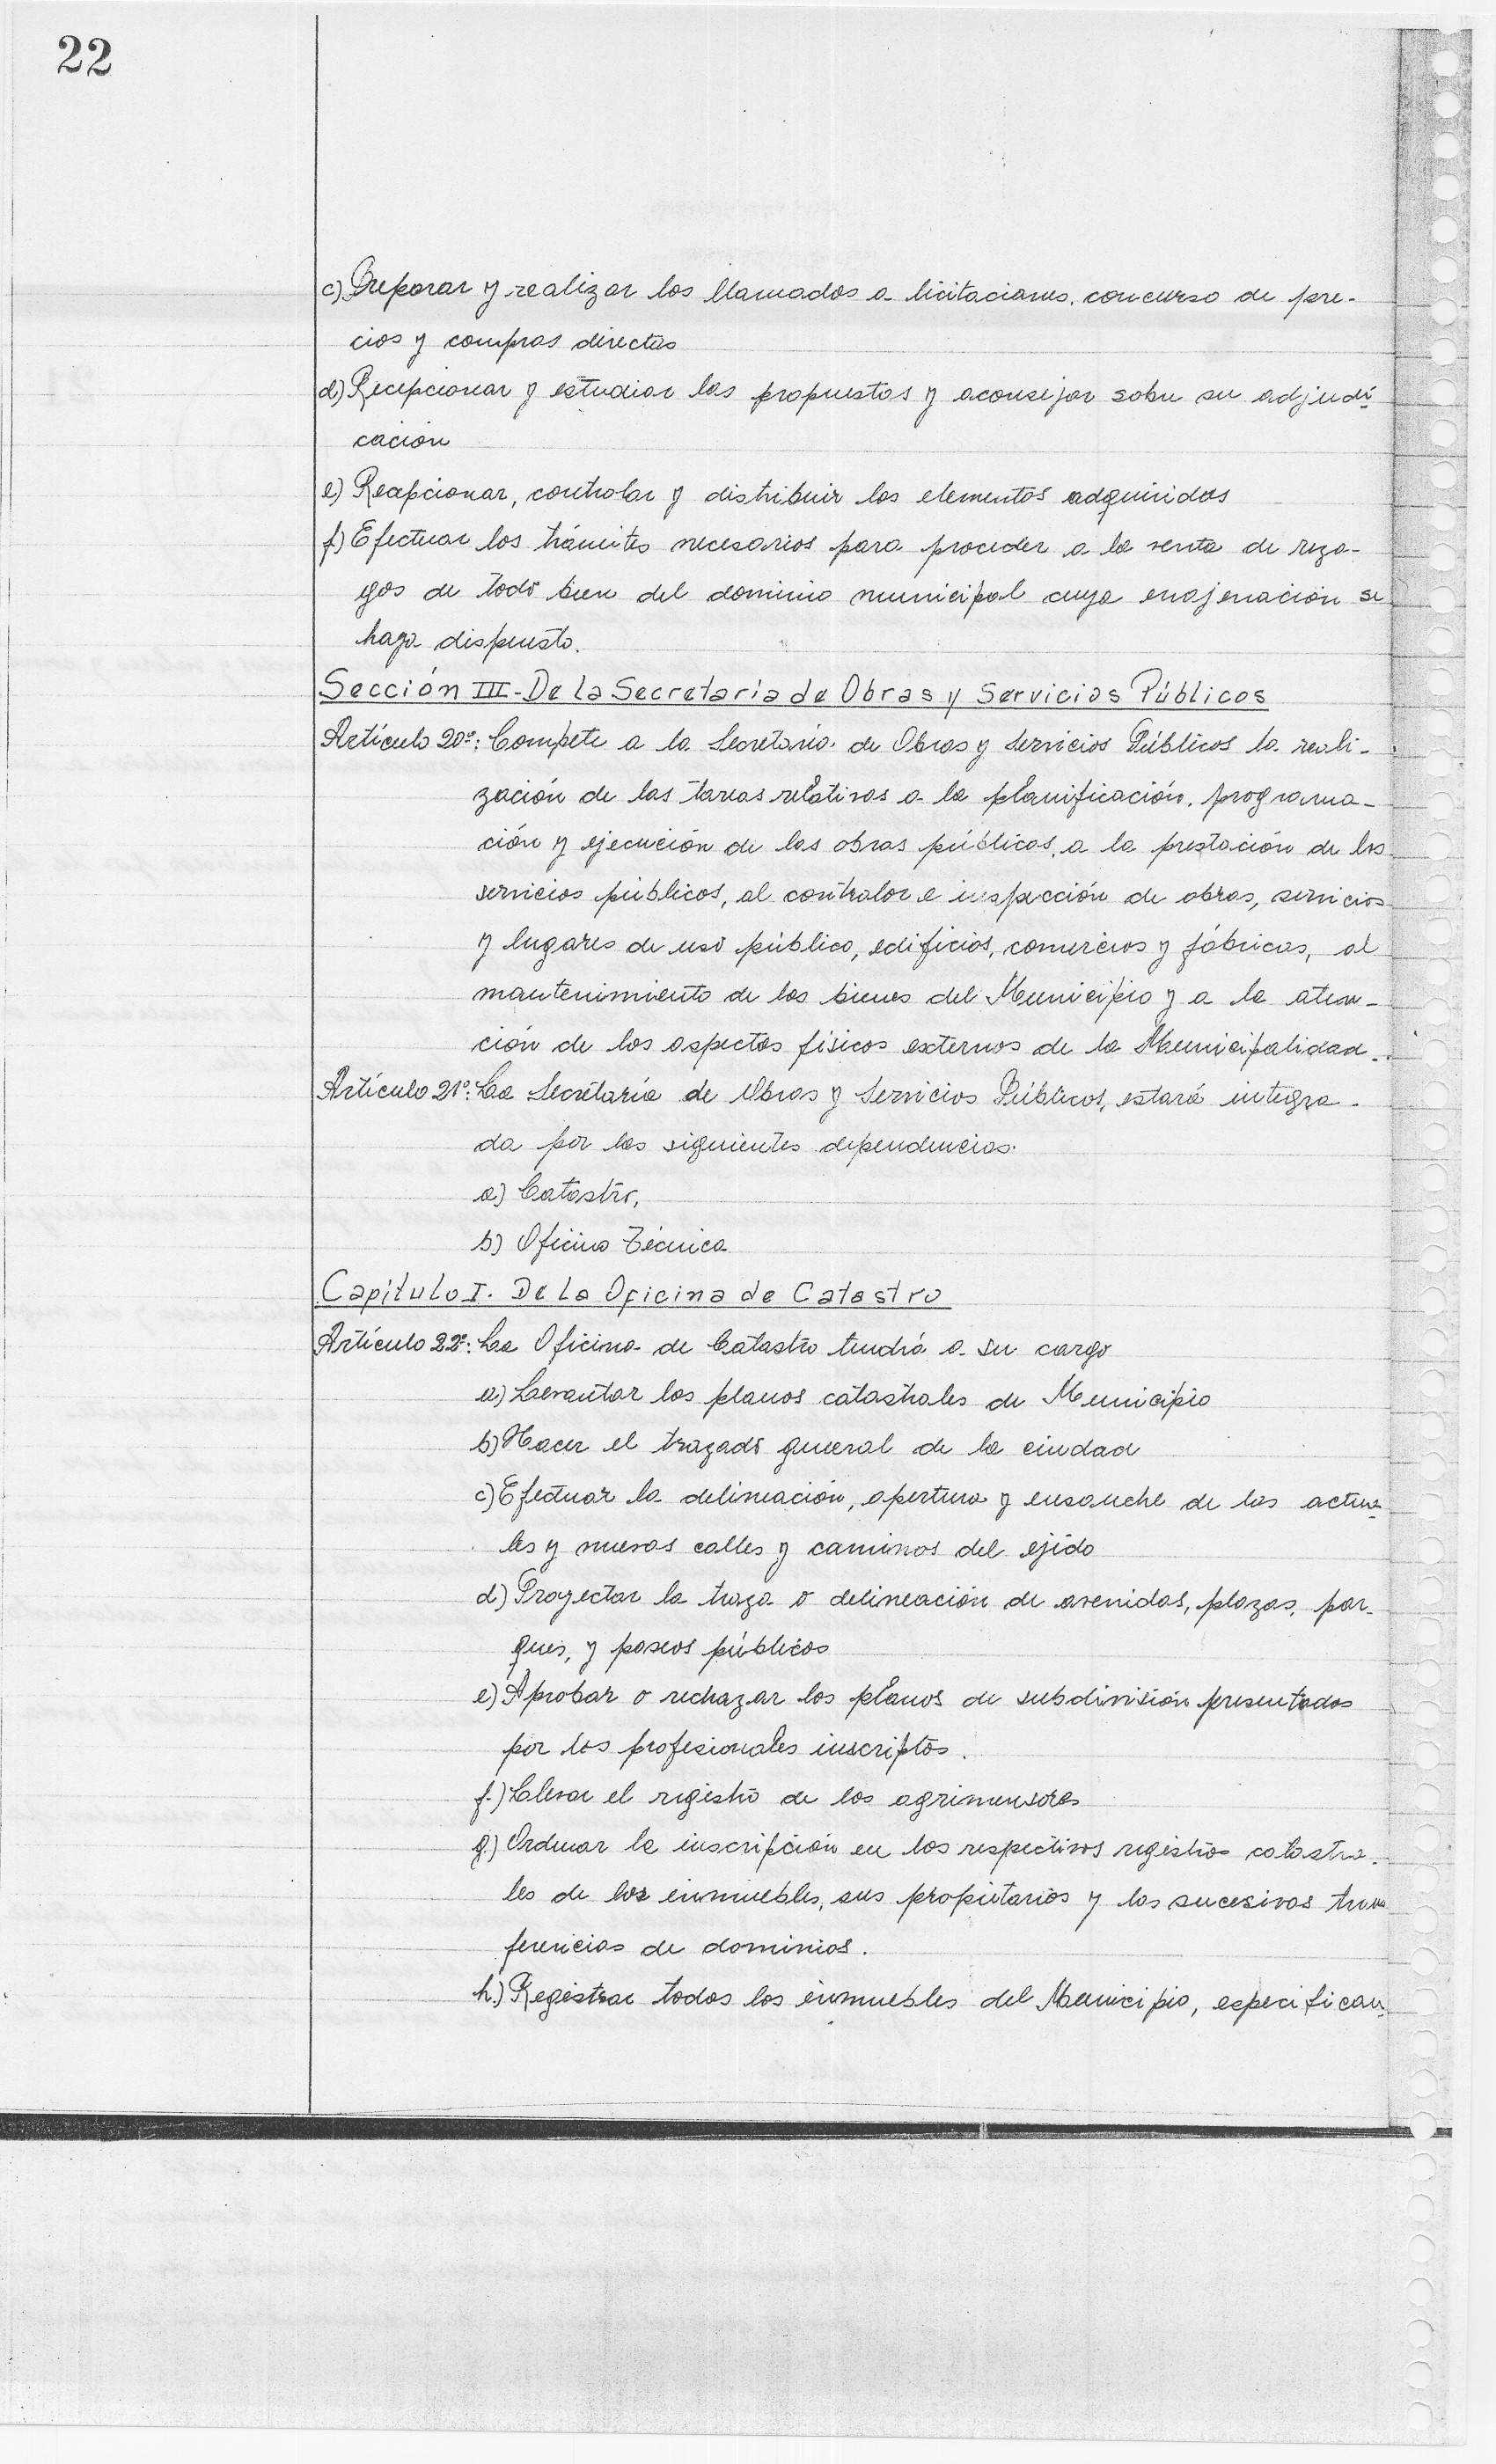 22
c) Preparar y realizar los llamados a licitaciones, concurso de pre-
cios y compras directas
d) Recepcionar y estudiar las propuestas y aconsejar sobre su adjudi-
cación
e) Recepcionar, controlar y distribuir los elementos adquiridos
f) Efectuar los trámites necesarios para proceder a la venta de reza-
gos de todo bien del dominio municipal cuya enajenación se
haya dispuesto.
Sección III - De la Secretaría de Obras y Servicios Públicos
Artículo 20º: Compete a la Secretaría de Obras y Servicios Públicos la reali-
zación de las tareas relativas a la planificación, programa-
ción y ejecución de las obras públicas, a la prestación de los
servicios públicos, al contralor e inspección de obras, servicios
y lugares de uso público, edificios, comercios y fábricas, al
mantenimiento de los bienes del Municipio y a la aten-
ción de los aspectos físicos externos de la Municipalidad.
Artículo 21º: La Secretaría de Obras y Servicios Públicos, estará integra-
da por las siguientes dependencias.
a) Catastro,
b) Oficina Técnica
Capítulo I. De la Oficina de Catastro
Artículo 22º: La Oficina de Catastro tendrá a su cargo
a) Levantar los planos catastrales de Municipio
b) Hacer el trazado general de la ciudad
c) Efectuar la delineación, apertura y ensanche de las actua-
les y nuevas calles y caminos del ejido
d) Proyectar la traza o delineación de avenidas, plazas, par-
ques, y paseos públicos
e) Aprobar o rechazar los planos de subdivisión presentados
por los profesionales inscriptos.
f.) Llevar el registro de los agrimensores
g.) Ordenar la inscripción en los respectivos registros catastra-
les de los inmuebles, sus propietarios y las sucesivas trans
ferencias de dominios.
h.) Registrar todos los inmuebles del Municipio, especifican-